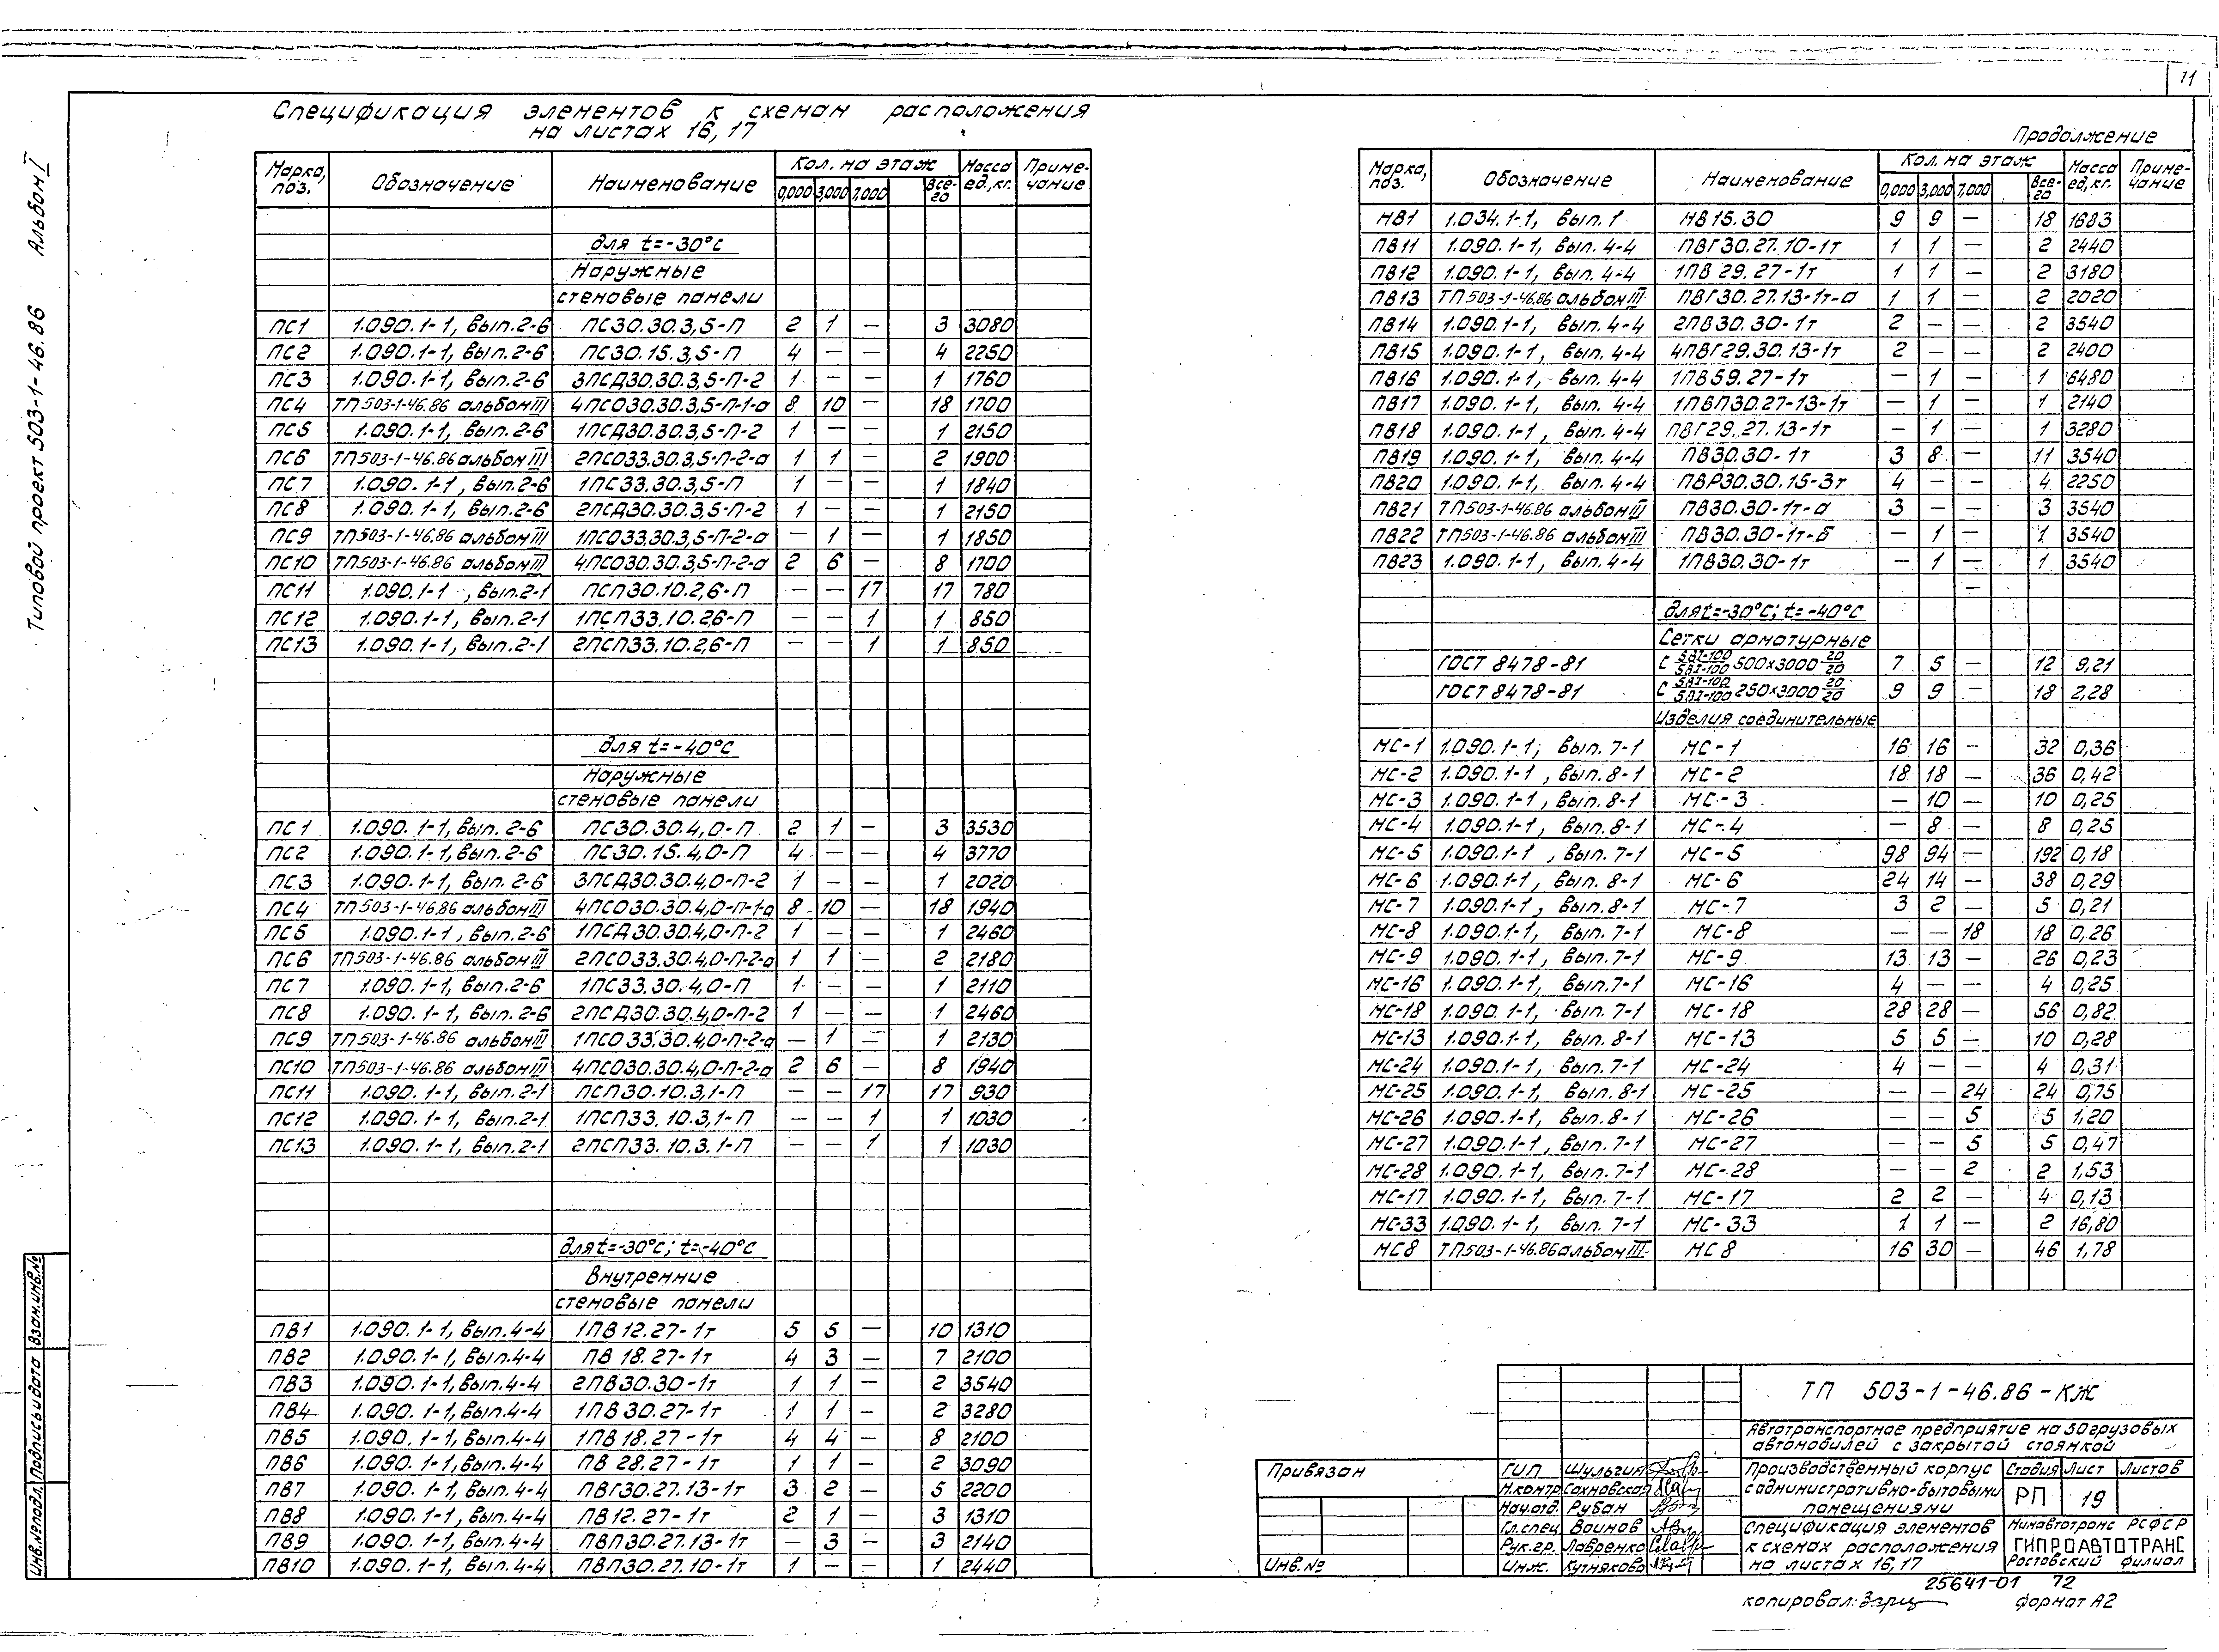 71
Типовой проект 503-1-46.86 Альбом I
Спецификация элементов к схемам расположения
на листах 16, 17
Марка, поз. Обозначение Наименование Кол. на этаж Масса ед., кг. Приме-чание
0,000 3,000 7,000 Все-го
для t=-30°С
Наружные
стеновые панели
ПС1 1.090.1-1, вып.2-6 ПС30.30.3,5-П 2 1 — 3 3080
ПС2 1.090.1-1, вып.2-6 ПС30.15.3,5-П 4 — — 4 2250
ПС3 1.090.1-1, вып.2-6 3ПСД30.30.3,5-П-2 1 — — 1 1760
ПС4 ТП503-1-46.86 альбом III 4ПСО30.30.3,5-П-1-а 8 10 — 18 1700
ПС5 1.090.1-1, вып.2-6 1ПСД30.30.3,5-П-2 1 — — 1 2150
ПС6 ТП503-1-46.86 альбом III 2ПСО33.30.3,5-П-2-а 1 1 — 2 1900
ПС7 1.090.1-1, вып.2-6 1ПС33.30.3,5-П 1 — — 1 1840
ПС8 1.090.1-1, вып.2-6 2ПСД30.30.3,5-П-2 1 — — 1 2150
ПС9 ТП503-1-46.86 альбом III 1ПСО33.30.3,5-П-2-а — 1 — 1 1850
ПС10 ТП503-1-46.86 альбом III 4ПСО30.30.3,5-П-2-а 2 6 — 8 1700
ПС11 1.090.1-1, вып.2-1 ПСП30.10.2,6-П — — 17 17 780
ПС12 1.090.1-1, вып.2-1 1ПСП33.10.2,6-П — — 1 1 850
ПС13 1.090.1-1, вып.2-1 2ПСП33.10.2,6-П — — 1 1 850
для t=-40°С
Наружные
стеновые панели
ПС1 1.090.1-1, вып.2-6 ПС30.30.4,0-П 2 1 — 3 3530
ПС2 1.090.1-1, вып.2-6 ПС30.15.4,0-П 4 — — 4 3770
ПС3 1.090.1-1, вып.2-6 3ПСД30.30.4,0-П-2 1 — — 1 2020
ПС4 ТП503-1-46.86 альбом III 4ПСО30.30.4,0-П-1-а 8 10 — 18 1940
ПС5 1.090.1-1, вып.2-6 1ПСД30.30.4,0-П-2 1 — — 1 2460
ПС6 ТП503-1-46.86 альбом III 2ПСО33.30.4,0-П-2-а 1 1 — 2 2180
ПС7 1.090.1-1, вып.2-6 1ПС33.30.4,0-П 1 — — 1 2110
ПС8 1.090.1-1, вып.2-6 2ПСД30.30.4,0-П-2 1 — — 1 2460
ПС9 ТП503-1-46.86 альбом III 1ПСО33.30.4,0-П-2-а — 1 — 1 2130
ПС10 ТП503-1-46.86 альбом III 4ПСО30.30.4,0-П-2-а 2 6 — 8 1940
ПС11 1.090.1-1, вып.2-1 ПСП30.10.3,1-П — — 17 17 930
ПС12 1.090.1-1, вып.2-1 1ПСП33.10.3,1-П — — 1 1 1030
ПС13 1.090.1-1, вып.2-1 2ПСП33.10.3.1-П — — 1 1 1030
для t=-30°С; t=-40°С
Внутренние
стеновые панели
ПВ1 1.090.1-1, вып.4-4 1ПВ12.27-1т 5 5 — 10 1310
ПВ2 1.090.1-1, вып.4-4 ПВ18.27-1т 4 3 — 7 2100
ПВ3 1.090.1-1, вып.4-4 2ПВ30.30-1т 1 1 — 2 3540
ПВ4 1.090.1-1, вып.4-4 1ПВ30.27-1т 1 1 — 2 3280
ПВ5 1.090.1-1, вып.4-4 1ПВ18.27-1т 4 4 — 8 2100
ПВ6 1.090.1-1, вып.4-4 ПВ28.27-1т 1 1 — 2 3090
ПВ7 1.090.1-1, вып.4-4 ПВГ30.27.13-1т 3 2 — 5 2200
ПВ8 1.090.1-1, вып.4-4 ПВ12.27-1т 2 1 — 3 1310
ПВ9 1.090.1-1, вып.4-4 ПВП30.27.13-1т — 3 — 3 2140
ПВ10 1.090.1-1, вып.4-4 ПВП30.27.10-1т 1 — — 1 2440
Продолжение
Марка, поз. Обозначение Наименование Кол. на этаж Масса ед., кг. Приме-чание
0,000 3,000 7,000 Все-го
НВ1 1.034.1-1, вып.1 НВ15.30 9 9 — 18 1683
ПВ11 1.090.1-1, вып.4-4 ПВГ30.27.10-1т 1 1 — 2 2440
ПВ12 1.090.1-1, вып.4-4 1ПВ29.27-1т 1 1 — 2 3180
ПВ13 ТП503-1-46.86 альбом III ПВГ30.27.13-1т-а 1 1 — 2 2020
ПВ14 1.090.1-1, вып.4-4 2ПВ30.30-1т 2 — — 2 3540
ПВ15 1.090.1-1, вып.4-4 4ПВГ29.30.13-1т 2 — — 2 2400
ПВ16 1.090.1-1, вып.4-4 1ПВ59.27-1т — 1 — 1 6480
ПВ17 1.090.1-1, вып.4-4 1ПВП30.27-13-1т — 1 — 1 2140
ПВ18 1.090.1-1, вып.4-4 ПВГ29.27.13-1т — 1 — 1 3280
ПВ19 1.090.1-1, вып.4-4 ПВ30.30-1т 3 8 — 11 3540
ПВ20 1.090.1-1, вып.4-4 ПВР30.30.15-3т 4 — — 4 2250
ПВ21 ТП503-1-46.86 альбом III ПВ30.30-1т-а 3 — — 3 3540
ПВ22 ТП503-1-46.86 альбом III ПВ30.30-1т-б — 1 — 1 3540
ПВ23 1.090.1-1, вып.4-4 1ПВ30.30-1т — 1 — 1 3540
—
для t=-30°С; t=-40°С
Сетки арматурные
ГОСТ 8478-81 С 5ВI-100/5ВI-100 500х3000 20/20 7 5 — 12 9,21
ГОСТ 8478-81 С 5ВI-100/5ВI-100 250х3000 20/20 9 9 — 18 2,28
Изделия соединительные
МС-1 1.090.1-1, вып.7-1 МС-1 16 16 — 32 0,36
МС-2 1.090.1-1, вып.8-1 МС-2 18 18 — 36 0,42
МС-3 1.090.1-1, вып.8-1 МС-3 — 10 — 10 0,25
МС-4 1.090.1-1, вып.8-1 МС-4 — 8 — 8 0,25
МС-5 1.090.1-1, вып.7-1 МС-5 98 94 — 192 0,18
МС-6 1.090.1-1, вып.8-1 МС-6 24 14 — 38 0,29
МС-7 1.090.1-1, вып.8-1 МС-7 3 2 — 5 0,21
МС-8 1.090.1-1, вып.7-1 МС-8 — — 18 18 0,26
МС-9 1.090.1-1, вып.7-1 МС-9 13 13 — 26 0,23
МС-16 1.090.1-1, вып.7-1 МС-16 4 — — 4 0,25
МС-18 1.090.1-1, вып.7-1 МС-18 28 28 — 56 0,82
МС-13 1.090.1-1, вып.8-1 МС-13 5 5 — 10 0,28
МС-24 1.090.1-1, вып.7-1 МС-24 4 — — 4 0,31
МС-25 1.090.1-1, вып.8-1 МС-25 — — 24 24 0,75
МС-26 1.090.1-1, вып.8-1 МС-26 — — 5 5 1,20
МС-27 1.090.1-1, вып.7-1 МС-27 — — 5 5 0,47
МС-28 1.090.1-1, вып.7-1 МС-28 — — 2 2 1,53
МС-17 1.090.1-1, вып.7-1 МС-17 2 2 — 4 0,13
МС-33 1.090.1-1, вып.7-1 МС-33 1 1 — 2 16,80
МС8 ТП503-1-46.86 альбом III МС8 16 30 — 46 1,78
ТП 503-1-46.86-КЖ
Автотранспортное предприятие на 50 грузовых
автомобилей с закрытой стоянкой
Привязан
Инв.№
ГИП Шульгин
Н.контр. Сахновская
Нач.отд. Рубан
Гл.спец. Воинов
Рук.гр. Лавренко
Инж. Кутнякова
Производственный корпус
с административно-бытовыми
помещениями
Стадия Лист Листов
РП 19
Спецификация элементов
к схемам расположения
на листах 16, 17
Минавтотранс РСФСР
ГИПРОАВТОТРАНС
Ростовский филиал
25641-01 72
копировал: формат А2
Инв.№подл. Подпись и дата Взам.инв.№